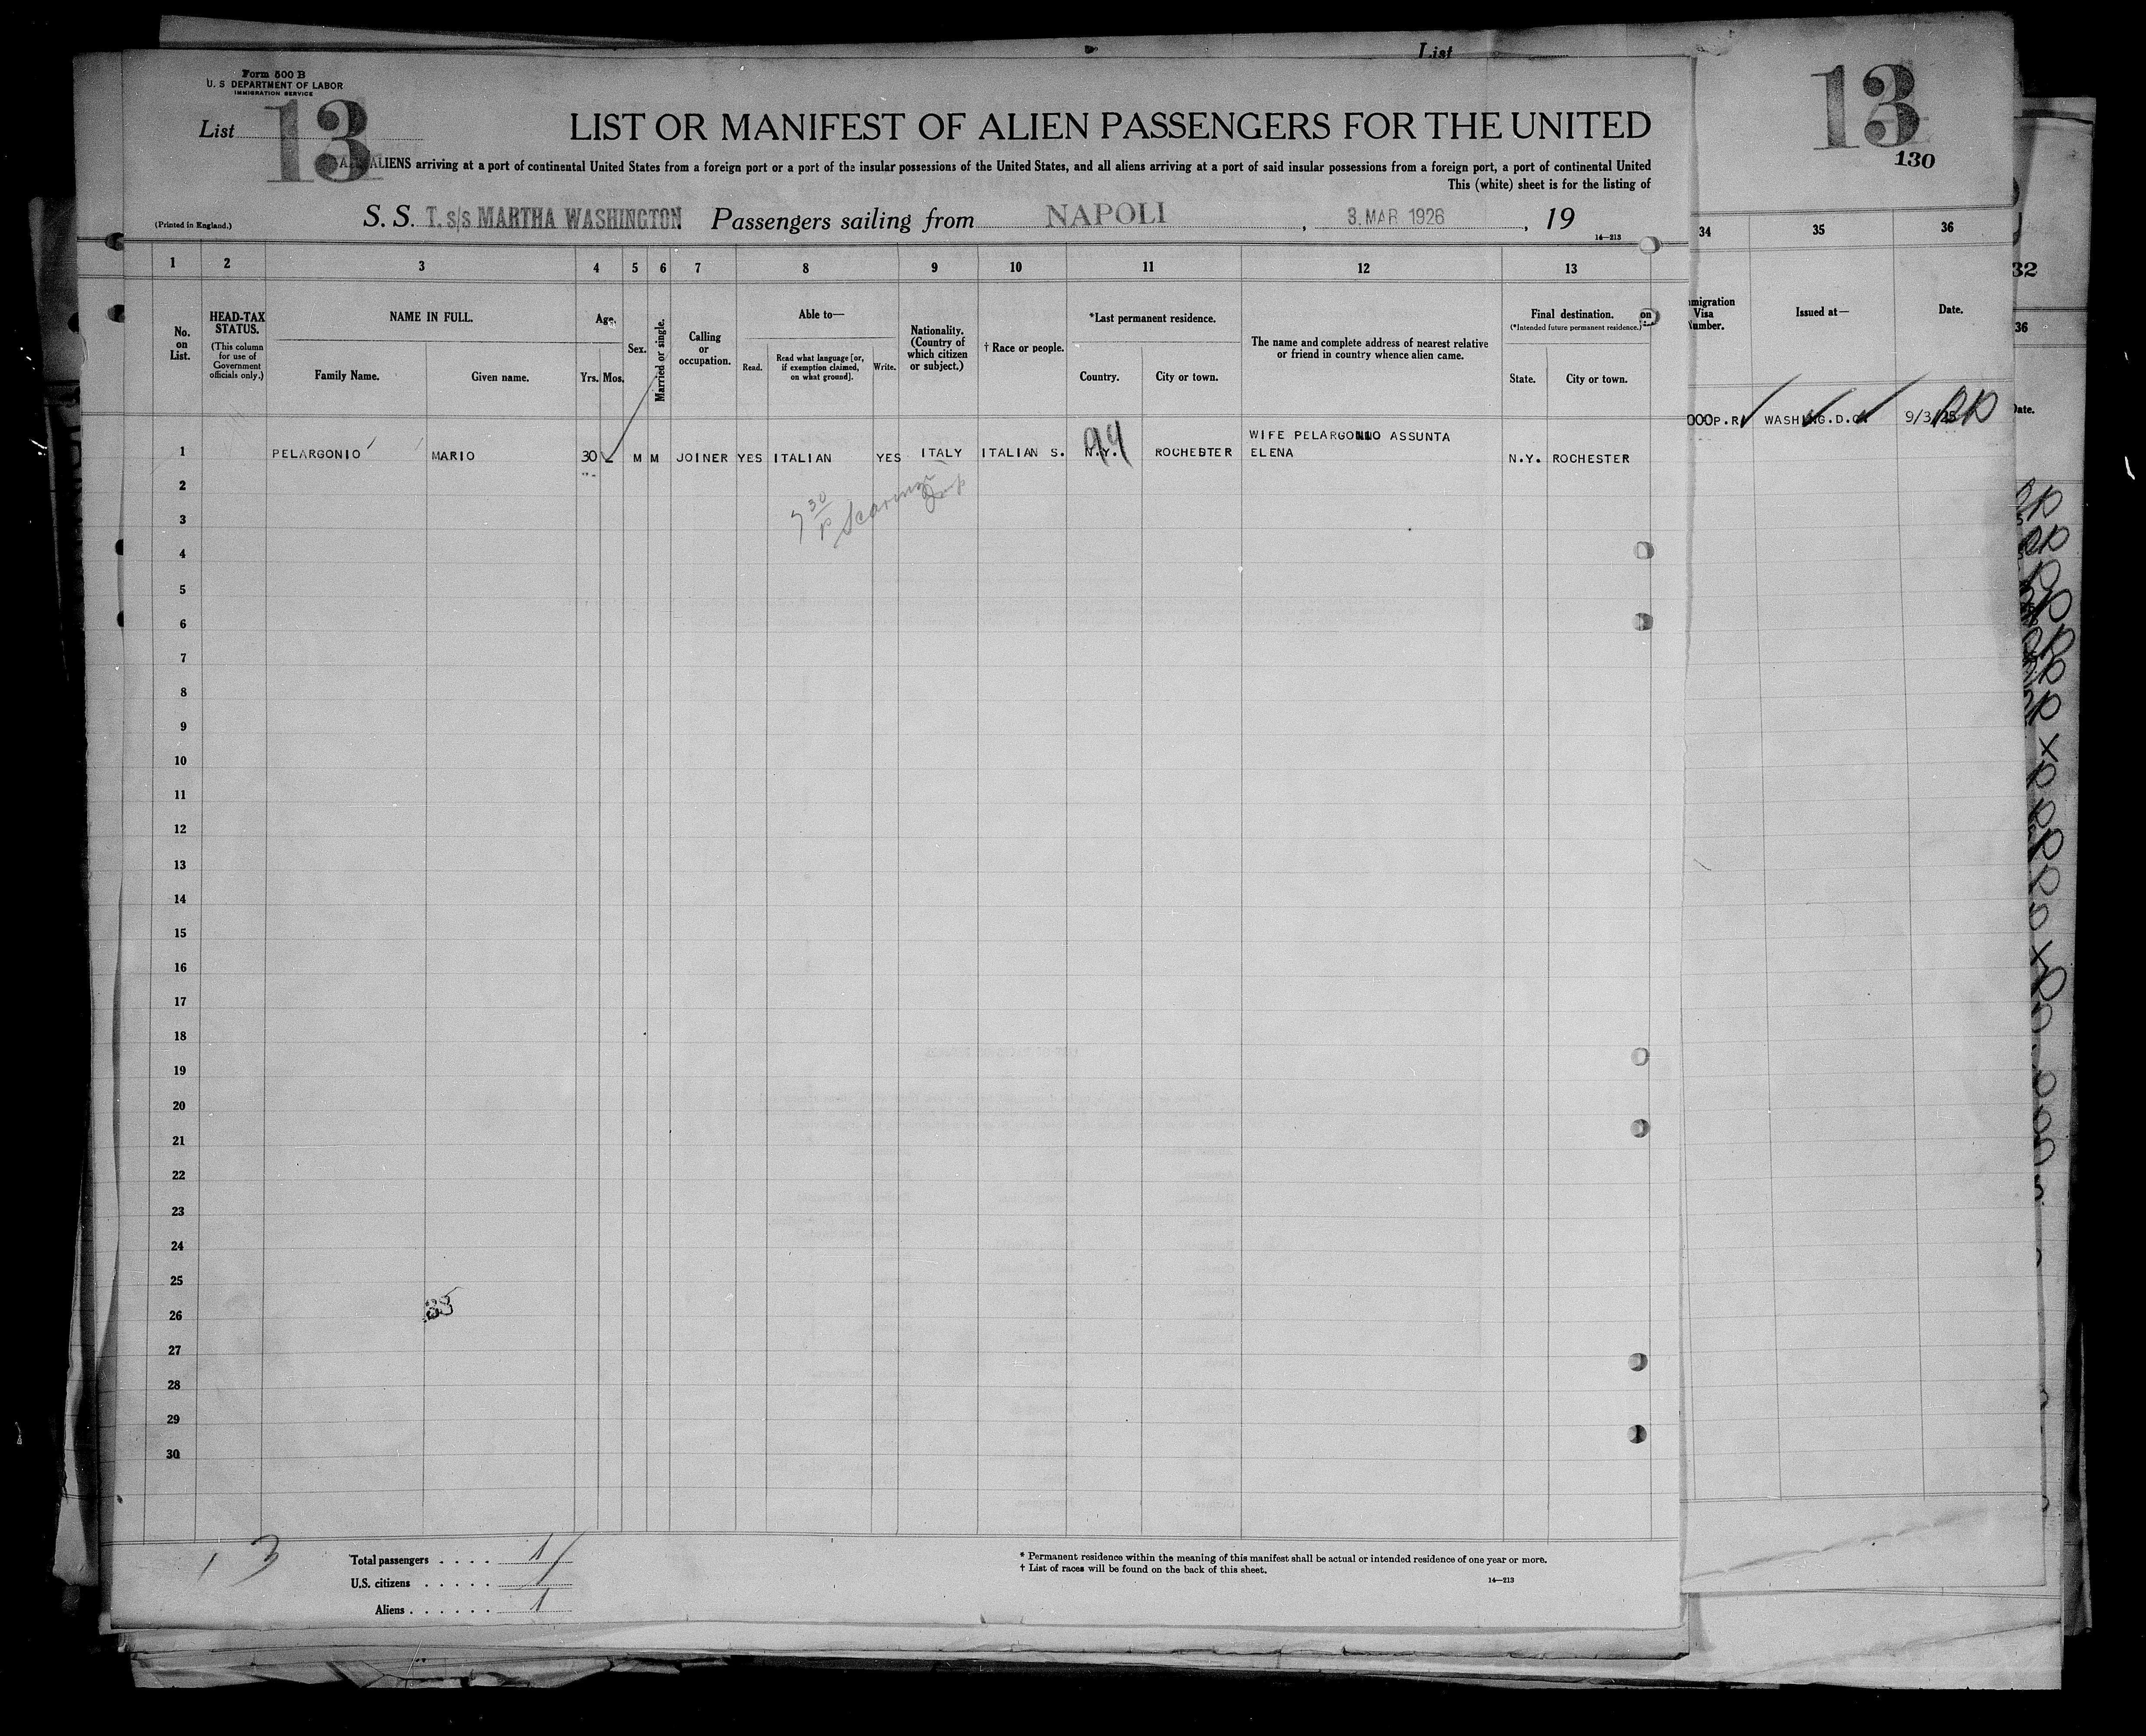 List
Form 500 B
U. S DEPARTMENT OF LABOR
IMMIGRATION SERVICE
List 13
LIST OR MANIFEST OF ALIEN PASSENGERS FOR THE UNITED
13
130
ALIENS arriving at a port of continental United States from a foreign port or a port of the insular possessions of the United States, and all aliens arriving at a port of said insular possessions from a foreign port, a port of continental United
This (white) sheet is for the listing of
(Printed in England.)
S. S. T. s/s MARTHA WASHINGTON Passengers sailing from NAPOLI, 3. MAR 1926, 19
14—213
1 2 3 4 5 6 7 8 9 10 11 12 13 34 35 36
32
No. on List.
HEAD-TAX STATUS.
(This column for use of Government officials only.)
NAME IN FULL.
Family Name. Given name.
Age.
Yrs. Mos.
Sex.
Married or single.
Calling or occupation.
Able to—
Read. Read what language [or, if exemption claimed, on what ground]. Write.
Nationality. (Country of which citizen or subject.)
† Race or people.
*Last permanent residence.
Country. City or town.
The name and complete address of nearest relative or friend in country whence alien came.
Final destination.
(*Intended future permanent residence.)
State. City or town.
on
migration Visa Number.
Issued at—
Date.
36
Date.
1 PELARGONIO MARIO 30 M M JOINER YES ITALIAN YES ITALY ITALIAN S. N.Y. ROCHESTER WIFE PELARGONIO ASSUNTA
ELENA N.Y. ROCHESTER
000P.R. WASHING.D.C. 9/3/25
2
3
4
5
6
7
8
9
10
11
12
13
14
15
16
17
18
19
20
21
22
23
24
25
26
27
28
29
30
13
Total passengers . . . . 1
U.S. citizens . . . . . .
Aliens . . . . . . 1
* Permanent residence within the meaning of this manifest shall be actual or intended residence of one year or more.
† List of races will be found on the back of this sheet.
14—213